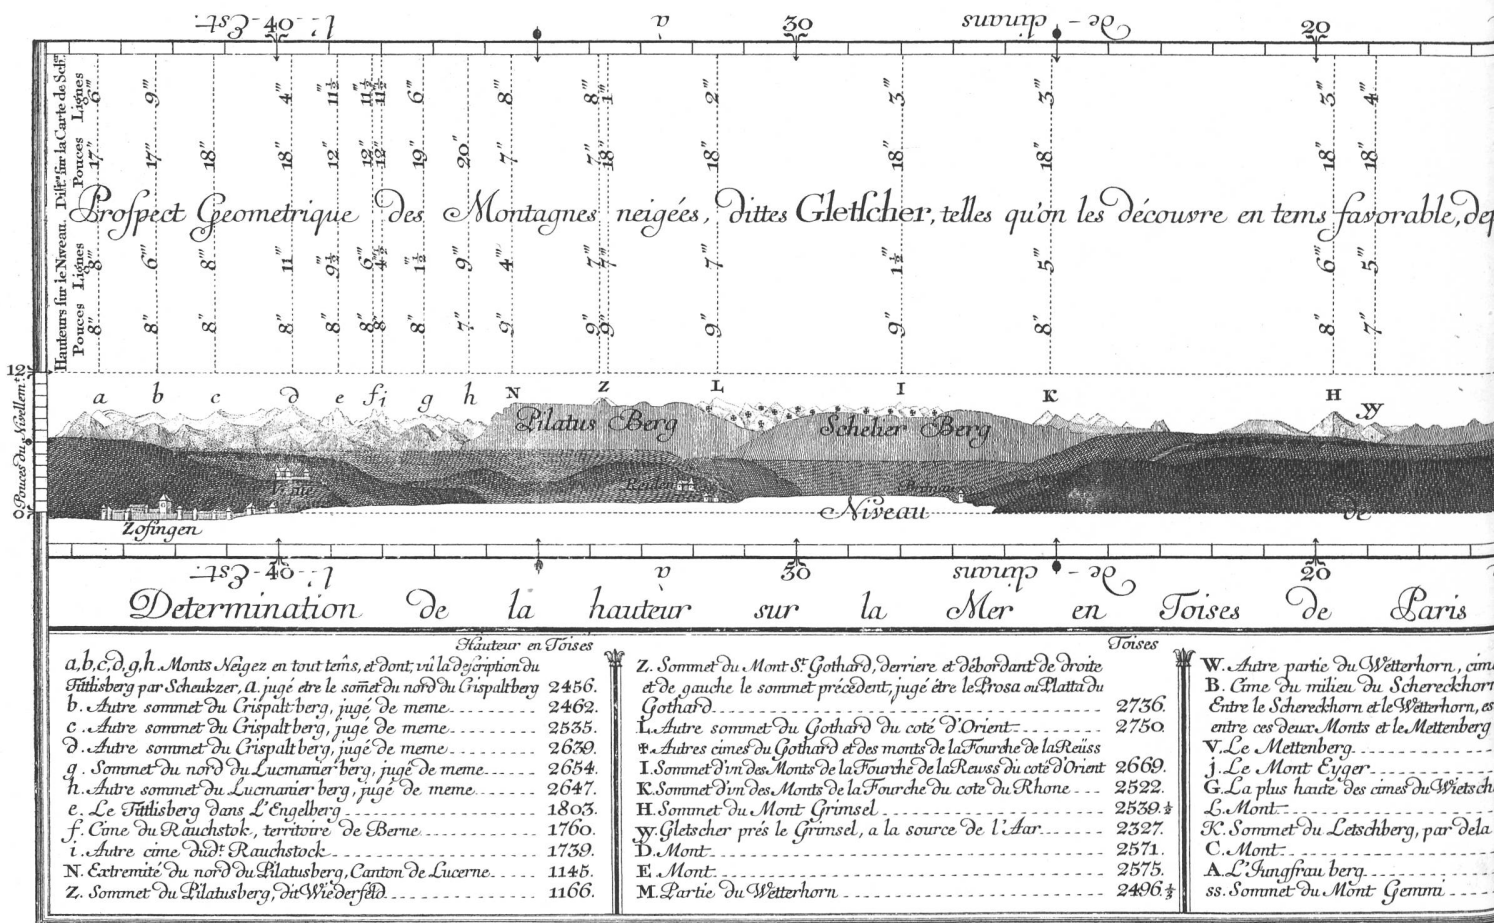 l'-Est. 40 à 30 de-clinans 20
Hauteurs sur le Niveau. Dist.ces sur la Carte de Sch.er
Pouces Lignes Pouces Lignes
6''' 9''' 4''' 11½''' 11½''' 11½''' 6''' 8''' 8''' 1''' 2''' 3''' 3''' 3''' 4'''
17'' 17'' 18'' 18'' 12'' 12'' 12'' 19'' 20'' 7'' 7'' 18'' 18'' 18'' 18'' 18'' 18''
Prospect Geometrique des Montagnes neigées, dittes Gletscher, telles qu'on les découvre en tems favorable, dep
8''' 6''' 8''' 11''' 9½''' 6''' 4½''' 1½''' 9''' 4''' 7''' 7''' 7''' 1½''' 5''' 6''' 5'''
8'' 8'' 8'' 8'' 8'' 8'' 8'' 8'' 7'' 9'' 9'' 9'' 9'' 9'' 8'' 8'' 7''
12
a b c d e f i g h N Z L I K H W
Pilatus Berg Schelier Berg
Pouces du Nivellem.t
0
Niveau de
Zofingen
l'-Est. 40 à 30 de-clinans 20
Determination de la hauteur sur la Mer en Toises de Paris
Hauteur en Toises
a,b,c,d,g,h. Monts Neigez en tout tems, et dont, vû la description du
Tittlisberg par Scheukzer, a. jugé etre le somet du nord du Crispaltberg 2456.
b. Autre sommet du Crispalt berg, jugé de meme 2462.
c. Autre sommet du Crispalt berg, jugé de meme 2535.
d. Autre sommet du Crispalt berg, jugé de meme 2639.
g. Sommet du nord du Lucmanier berg, jugé de meme 2654.
h. Autre sommet du Lucmanier berg, jugé de meme 2647.
e. Le Tittlisberg dans L'Engelberg 1803.
f. Cime du Rauchstok, territoire de Berne 1760.
i. Autre cime dud.t Rauchstock 1739.
N. Extremité du nord du Pilatusberg, Canton de Lucerne 1145.
Z. Sommet du Pilatusberg, dit Wiederfeld 1166.
Toises
Z. Sommet du Mont S.t Gothard, derriere et débordant de droite
et de gauche le sommet précedent, jugé être le Prosa ou Platta du
Gothard 2736.
L. Autre sommet du Gothard du coté d'Orient 2750.
✠. Autres cimes du Gothard et des monts de la Fourche de la Reüss
I. Sommet d'vn des Monts de la Fourche de la Reuss du coté d'Orient 2669.
K. Sommet d'vn des Monts de la Fourche du cote du Rhone 2522.
H. Sommet du Mont Grimsel 2539.½
W. Gletscher prés le Grimsel, a la source de l'Aar 2327.
D. Mont 2571.
E. Mont 2575.
M. Partie du Wetterhorn 2496.⅓
W. Autre partie du Wetterhorn, cim
B. Cime du milieu du Schereckhorn
Entre le Schereckhorn et le Wetterhorn, es
entre ces deux Monts et le Mettenberg
V. Le Mettenberg
j. Le Mont Eyger
G. La plus haute des cimes du Wietsch
L. Mont
K. Sommet du Letschberg, par dela
C. Mont
A. L'Jungfrau berg
ss. Sommet du Mont Gemmi